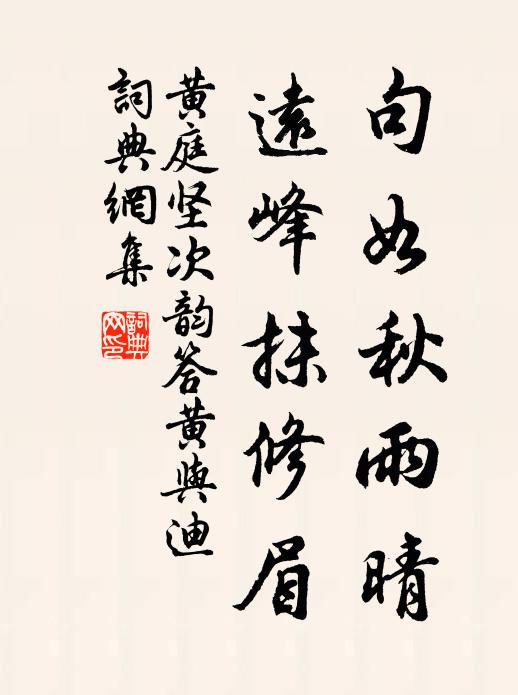 句如秋雨晴
遠峰抹修眉
黄庭坚次韵答黄與迪
詞典網集
詞典網印